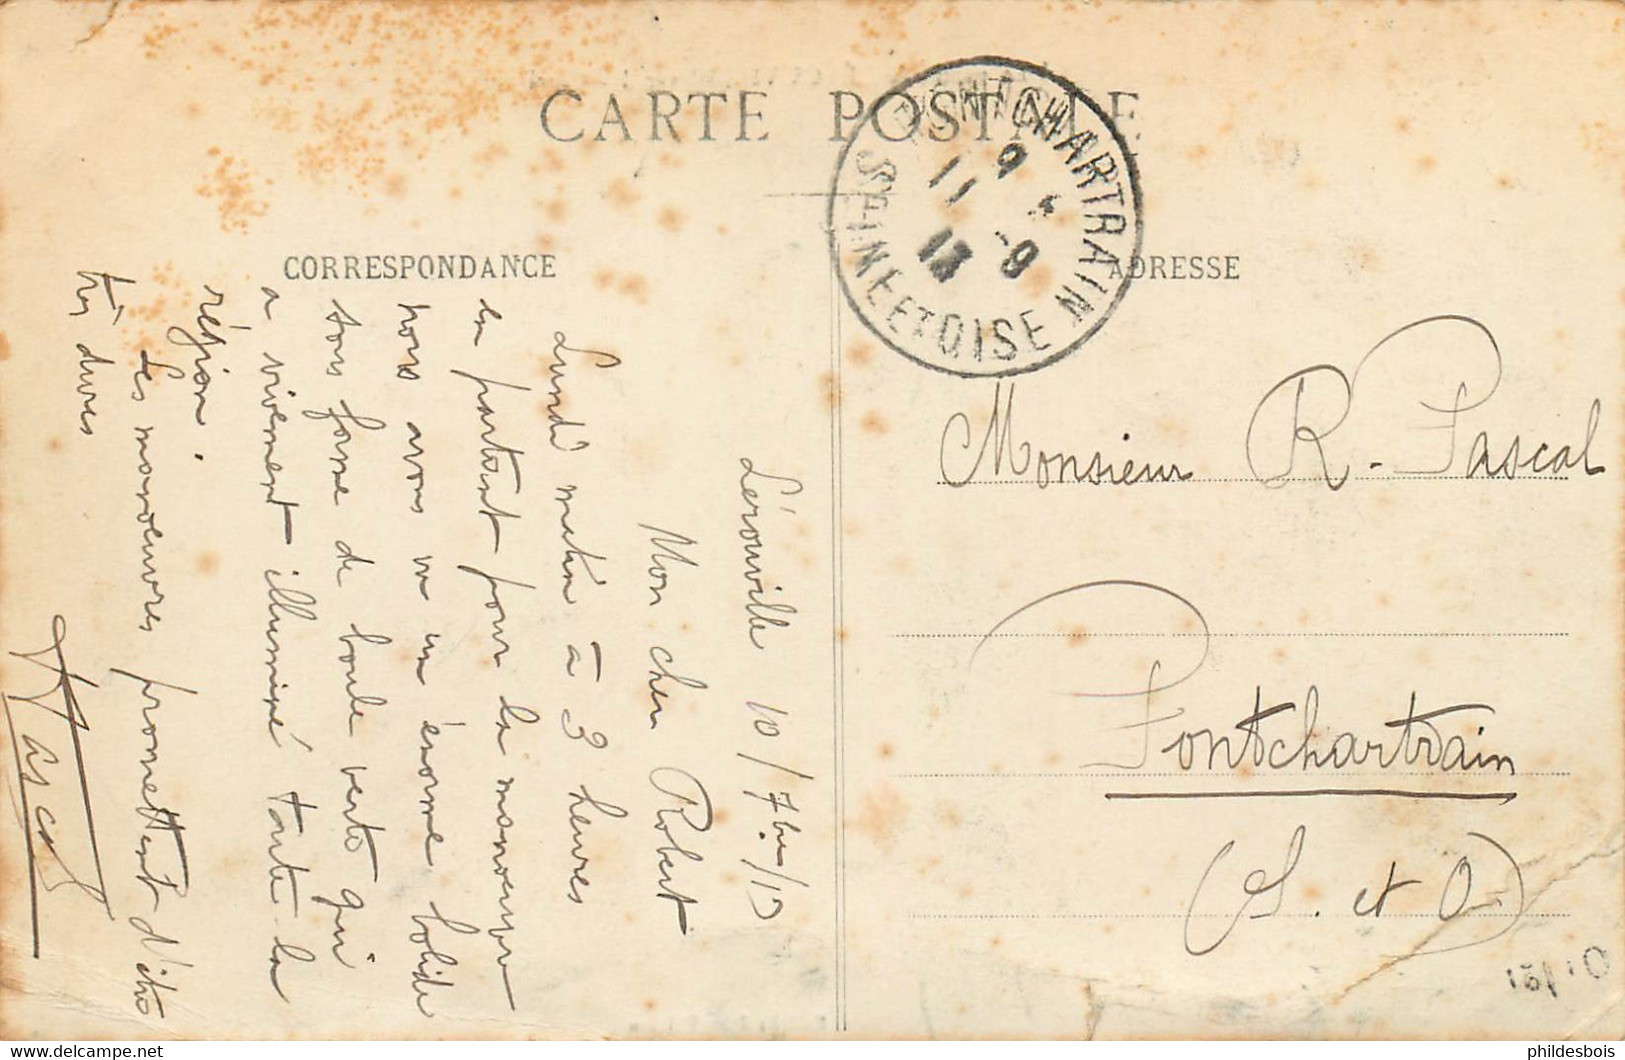 CARTE POSTALE
CORRESPONDANCE
ADRESSE
PONTCHARTRAIN
9
11 - 9
13
SEINE ET OISE
Lérouville 10/7bre/13
Mon cher Robert
Lundi matin à 3 heures
en partant pour la manoeuvre
nous avons vu un énorme bolide
sous forme de boule verte qui
a vivement illuminé toute la
région.
Les manoeuvres promettent d'être
très dures
Pascal
Monsieur R. Pascal
Pontchartrain
(S. et O)
phildesbois